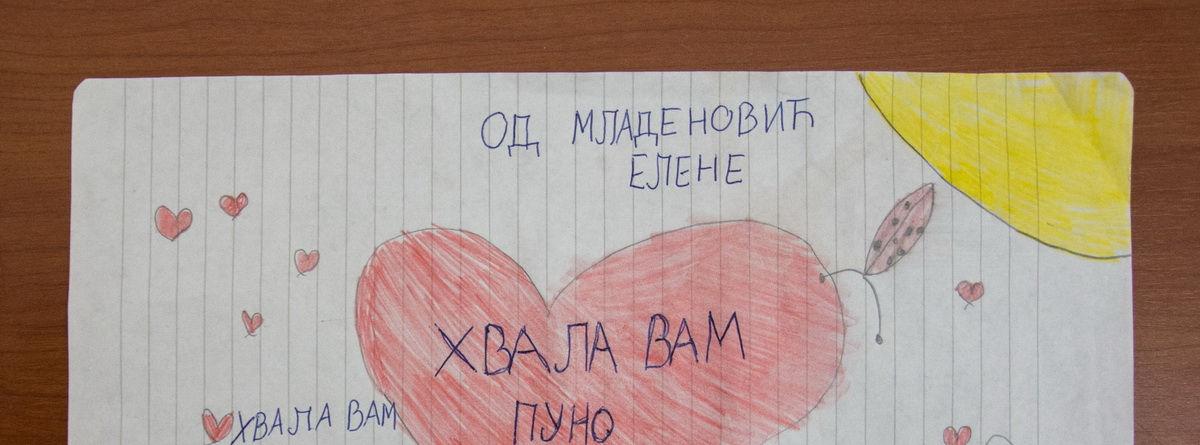 ОД МЛАДЕНОВИЋ
ЕЛЕНЕ
ХВАЛА ВАМ
ПУНО
ХВАЛА ВАМ